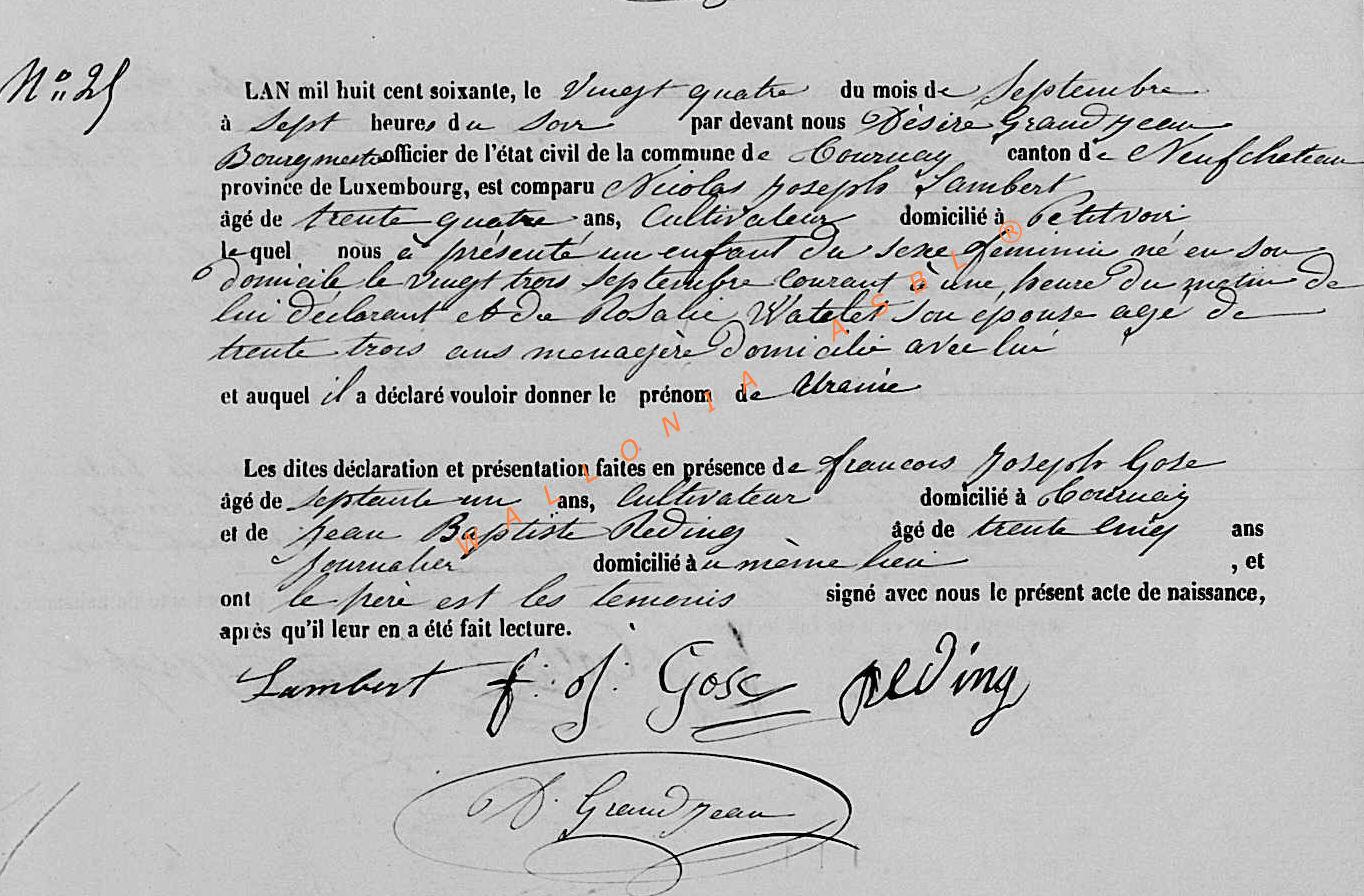 N° 25
LAN mil huit cent soixante, le Vingt quatre du mois de Septembre
à Sept heures du Soir par devant nous Désiré Grandjean
Bourgmestre officier de l'état civil de la commune de Tournay canton de Neufchateau
province de Luxembourg, est comparu Nicolas Joseph Lambert
âgé de trente quatre ans, Cultivateur domicilié à Petitvoir
le quel nous à présenté un enfant du sexe féminin né en son
domicile le vingt trois septembre courant à une heure du matin de
lui déclarant et de Rosalie Watelet son épouse agé de
trente trois ans menagère domicilié avec lui
et auquel il a déclaré vouloir donner le prénom de Uranie
Les dites déclaration et présentation faites en présence de francois Joseph Gose
âgé de septante un ans, Cultivateur domicilié à Tournay
et de jean Baptiste Reding âgé de trente cinq ans
journalier domicilié à u même lieu , et
ont le père est les temonis signé avec nous le présent acte de naissance,
après qu'il leur en a été fait lecture.
Lambert f: j: Gose Reding
D. Grandjean
WALLONIA ASBL ®